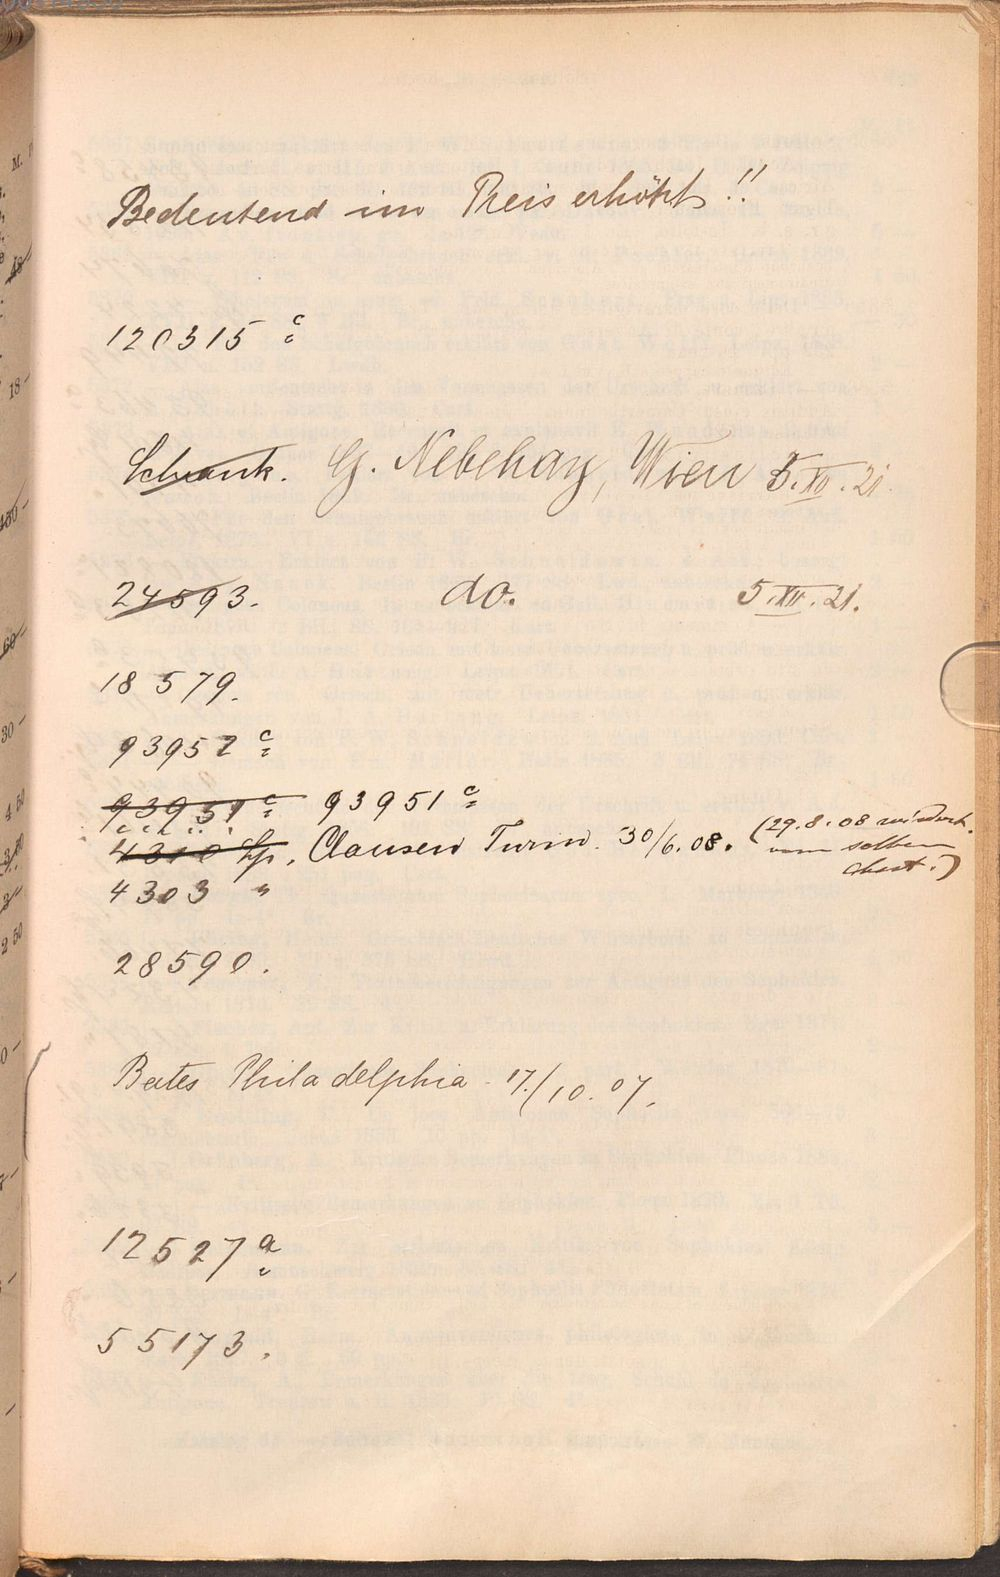 Bedeutend im Preis erhöht!!
120315 c
Schrank. G. Nebehay, Wien 5.XII.21.
24593. do. 5.XII.21.
18579.
93952 c
93951 c 93951 c
4310 Lp. Clausen Turin. 30/6.08. (29.8.08 wiederh.
vom selben
best.)
4303 "
28590.
Bates Philadelphia. 17./10.07.
12527 a
55173.
M.
48
18-
60-
30-
4 50
2 50